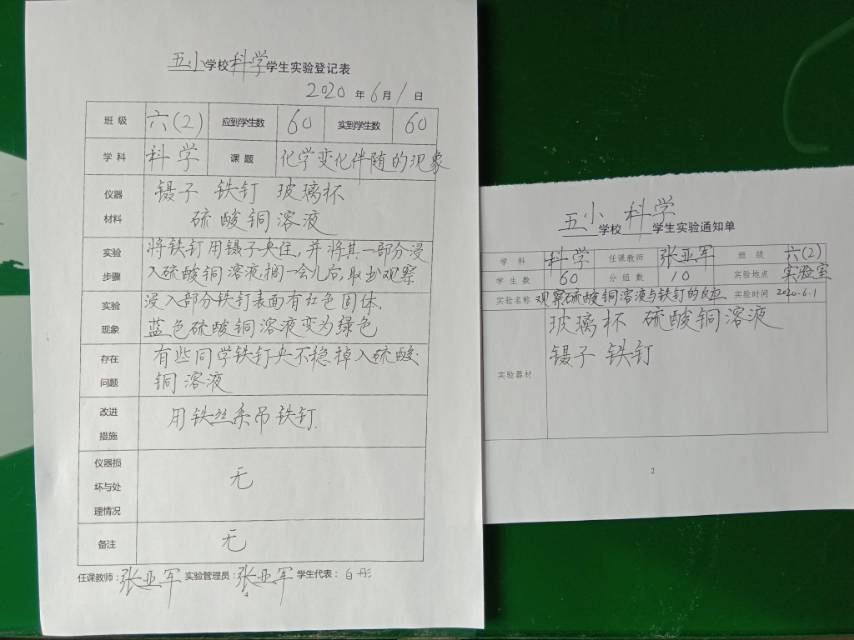 五小学校科学学生实验登记表
2020年6月1日
班级 六(2) 应到学生数 60 实到学生数 60
学科 科学 课题 化学变化伴随的现象
仪器材料 镊子 铁钉 玻璃杯
硫酸铜溶液
实验步骤 将铁钉用镊子夹住,并将其一部分浸
入硫酸铜溶液,搁一会儿后,取出观察
实验现象 浸入部分铁钉表面有红色固体.
蓝色硫酸铜溶液变为绿色
存在问题 有些同学铁钉夹不稳掉入硫酸
铜溶液
改进措施 用铁丝系吊铁钉.
仪器损坏与处理情况 无
备注 无
任课教师:张亚军 实验管理员:张亚军 学生代表:白彤
4
五小学校 科学 学生实验通知单
学科 科学 任课教师 张亚军 班级 六(2)
学生数 60 分组数 10 实验地点 实验室
实验名称 观察硫酸铜溶液与铁钉的反应 实验时间 2020.6.1
实验器材 玻璃杯 硫酸铜溶液
镊子 铁钉
2